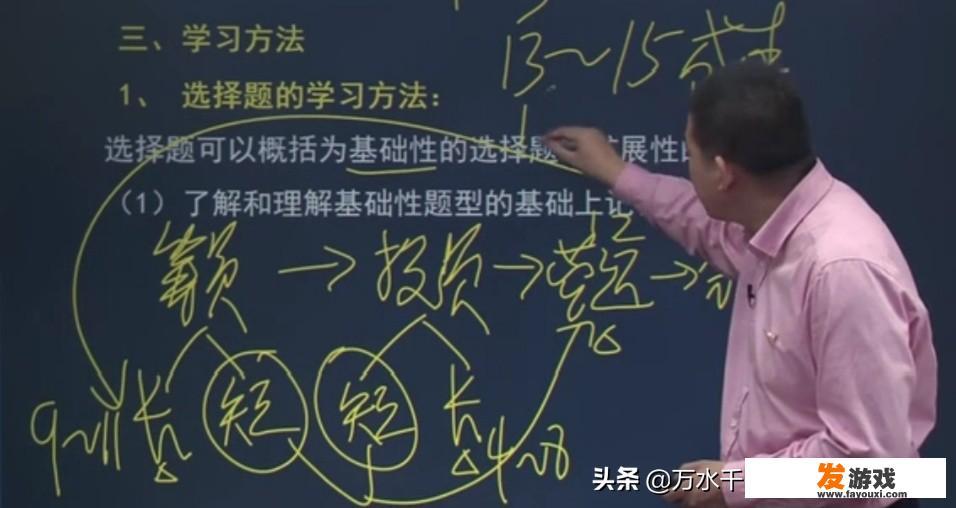 三、学习方法
13~15
1、 选择题的学习方法：
选择题可以概括为基础性的选择题 扩展性的
（1）了解和理解基础性题型的基础上记
筹资 → 投资 → 营运 →
长 短 短 长
9~11 4~8
头条 @万水千
发游戏
www.fayouxi.com